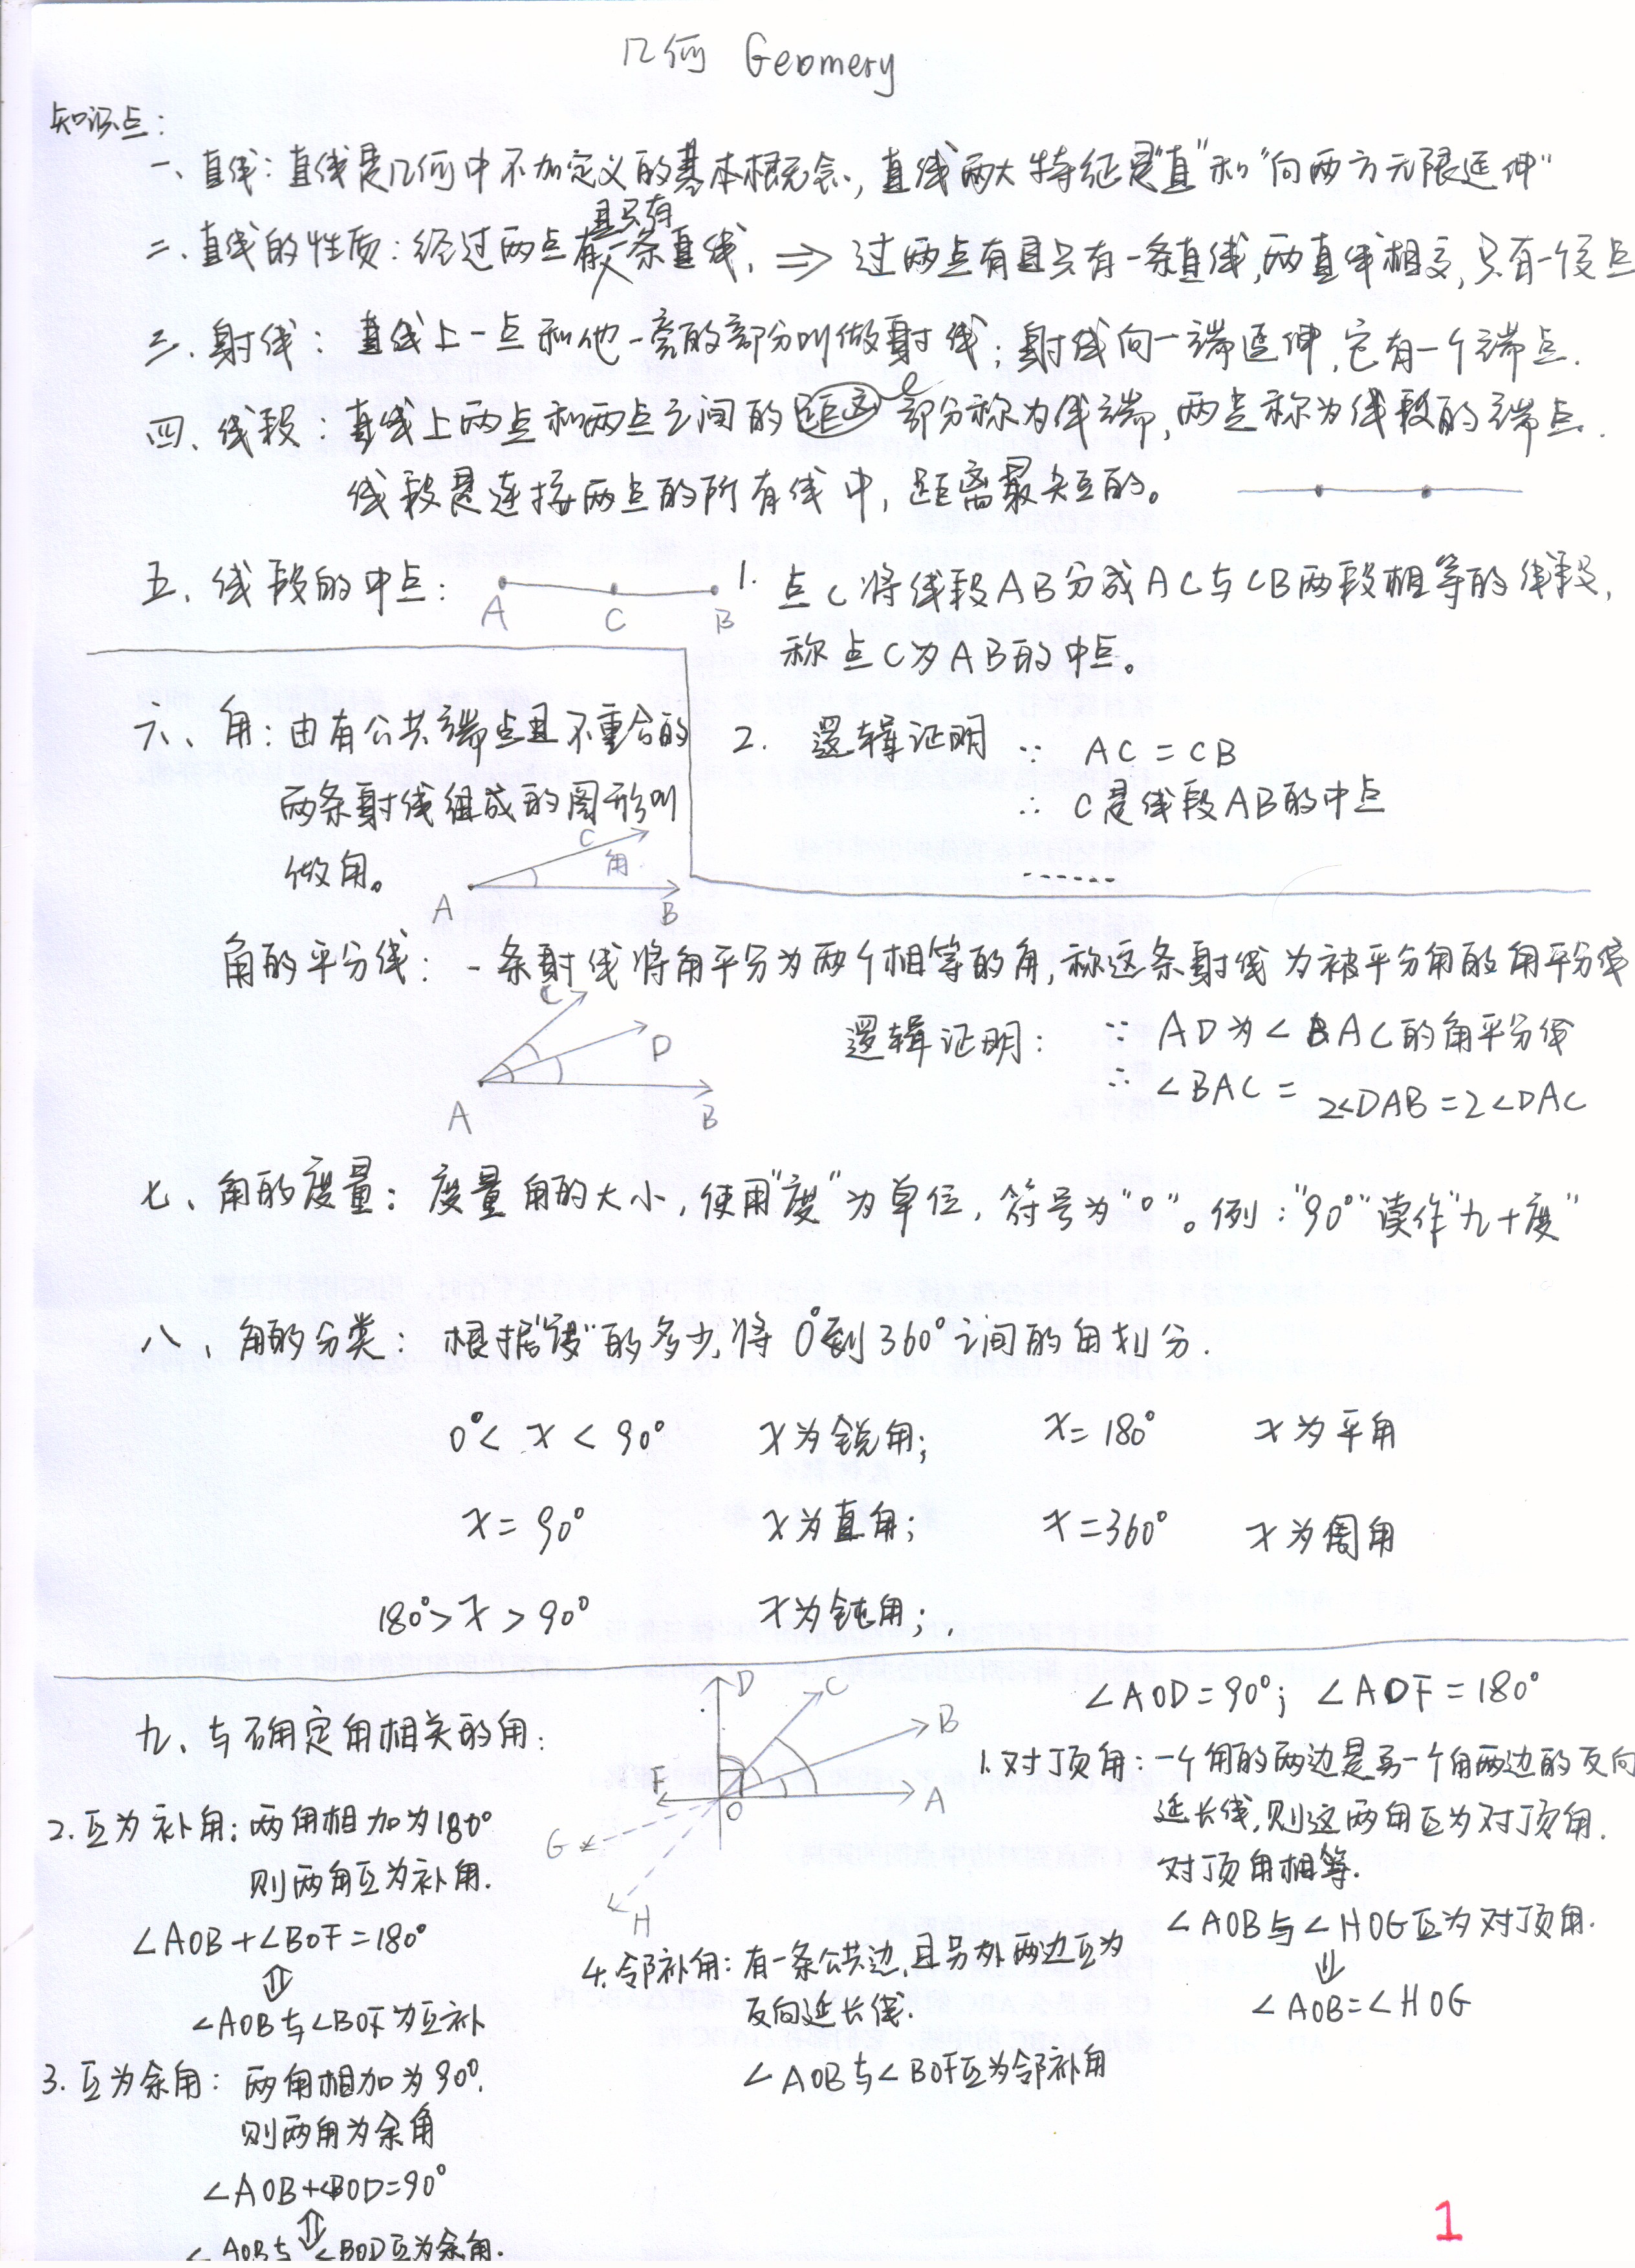 几何 Geomery
知识点:
一、直线:直线是几何中不加定义的基本概念,直线两大特征是"直"和"向两方无限延伸"
且只有
二、直线的性质:经过两点有一条直线. ⇒ 过两点有且只有一条直线,两直线相交,只有一个交点
三.射线: 直线上一点和他一旁的部分叫做射线;射线向一端延伸,它有一个端点.
四、线段:直线上两点和两点之间的部分称为线端,两点称为线段的端点.
线段是连接两点的所有线中,距离最短的。
五、线段的中点:
A C B
1. 点C将线段AB分成AC与CB两段相等的线段,
称点C为AB的中点。
2. 逻辑证明 ∵ AC=CB
∴ C是线段AB的中点
......
六、角:由有公共端点且不重合的
两条射线组成的图形叫
做角。
C 角
A B
角的平分线: 一条射线将角平分为两个相等的角,称这条射线为被平分角的角平分线
C
D
A B
逻辑证明: ∵ AD为∠BAC的角平分线
∴ ∠BAC=2∠DAB=2∠DAC
七、角的度量:度量角的大小,使用"度"为单位,符号为"°"。例:"90°"读作"九十度"
八、角的分类:根据"度"的多少,将0°到360°之间的角划分.
0°<x<90° x为锐角; x=180° x为平角
x=90° x为直角; x=360° x为周角
180°>x>90° x为钝角;
九、与确定角相关的角:
D C B
F O A
G
H
∠AOD=90°; ∠AOF=180°
1.对顶角:一个角的两边是另一个角两边的反向
延长线,则这两角互为对顶角.
对顶角相等.
∠AOB与∠HOG互为对顶角.
⇓
∠AOB=∠HOG
2.互为补角:两角相加为180°
则两角互为补角.
∠AOB+∠BOF=180°
⇕
∠AOB与∠BOF为互补
3.互为余角:两角相加为90°.
则两角为余角
∠AOB+∠BOD=90°
⇕
∠AOB与∠BOD互为余角.
4.邻补角:有一条公共边,且另外两边互为
反向延长线.
∠AOB与∠BOF互为邻补角
1